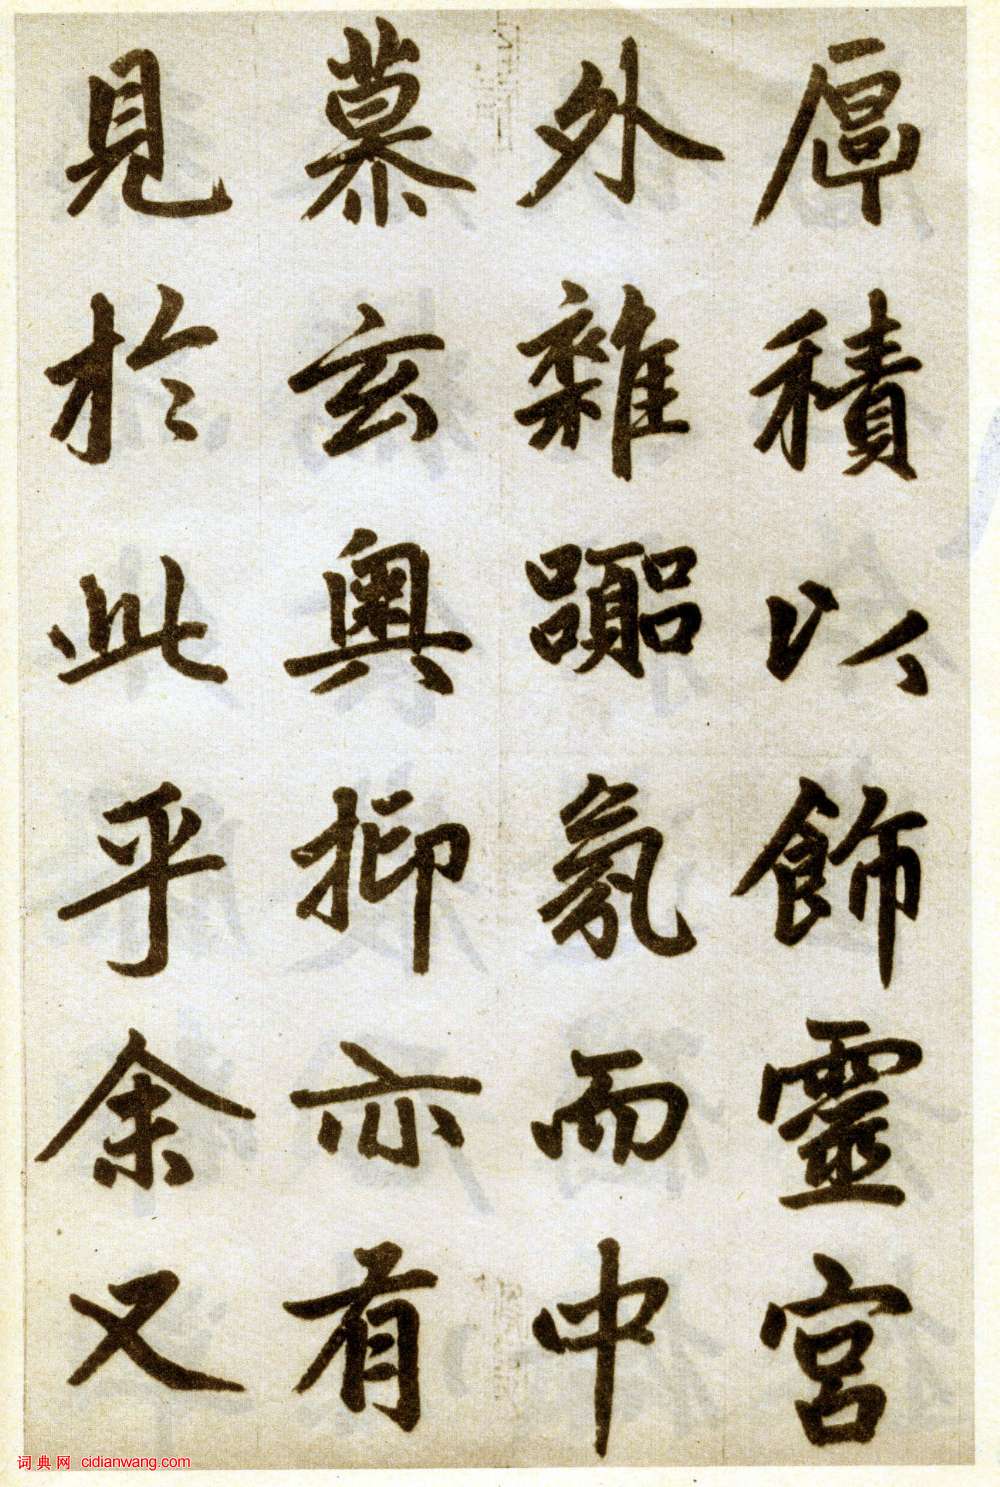 厚積以飾靈宮
外雜囂氛而中
慕玄奧抑亦有
見於此乎余又
词典网 cidianwang.com